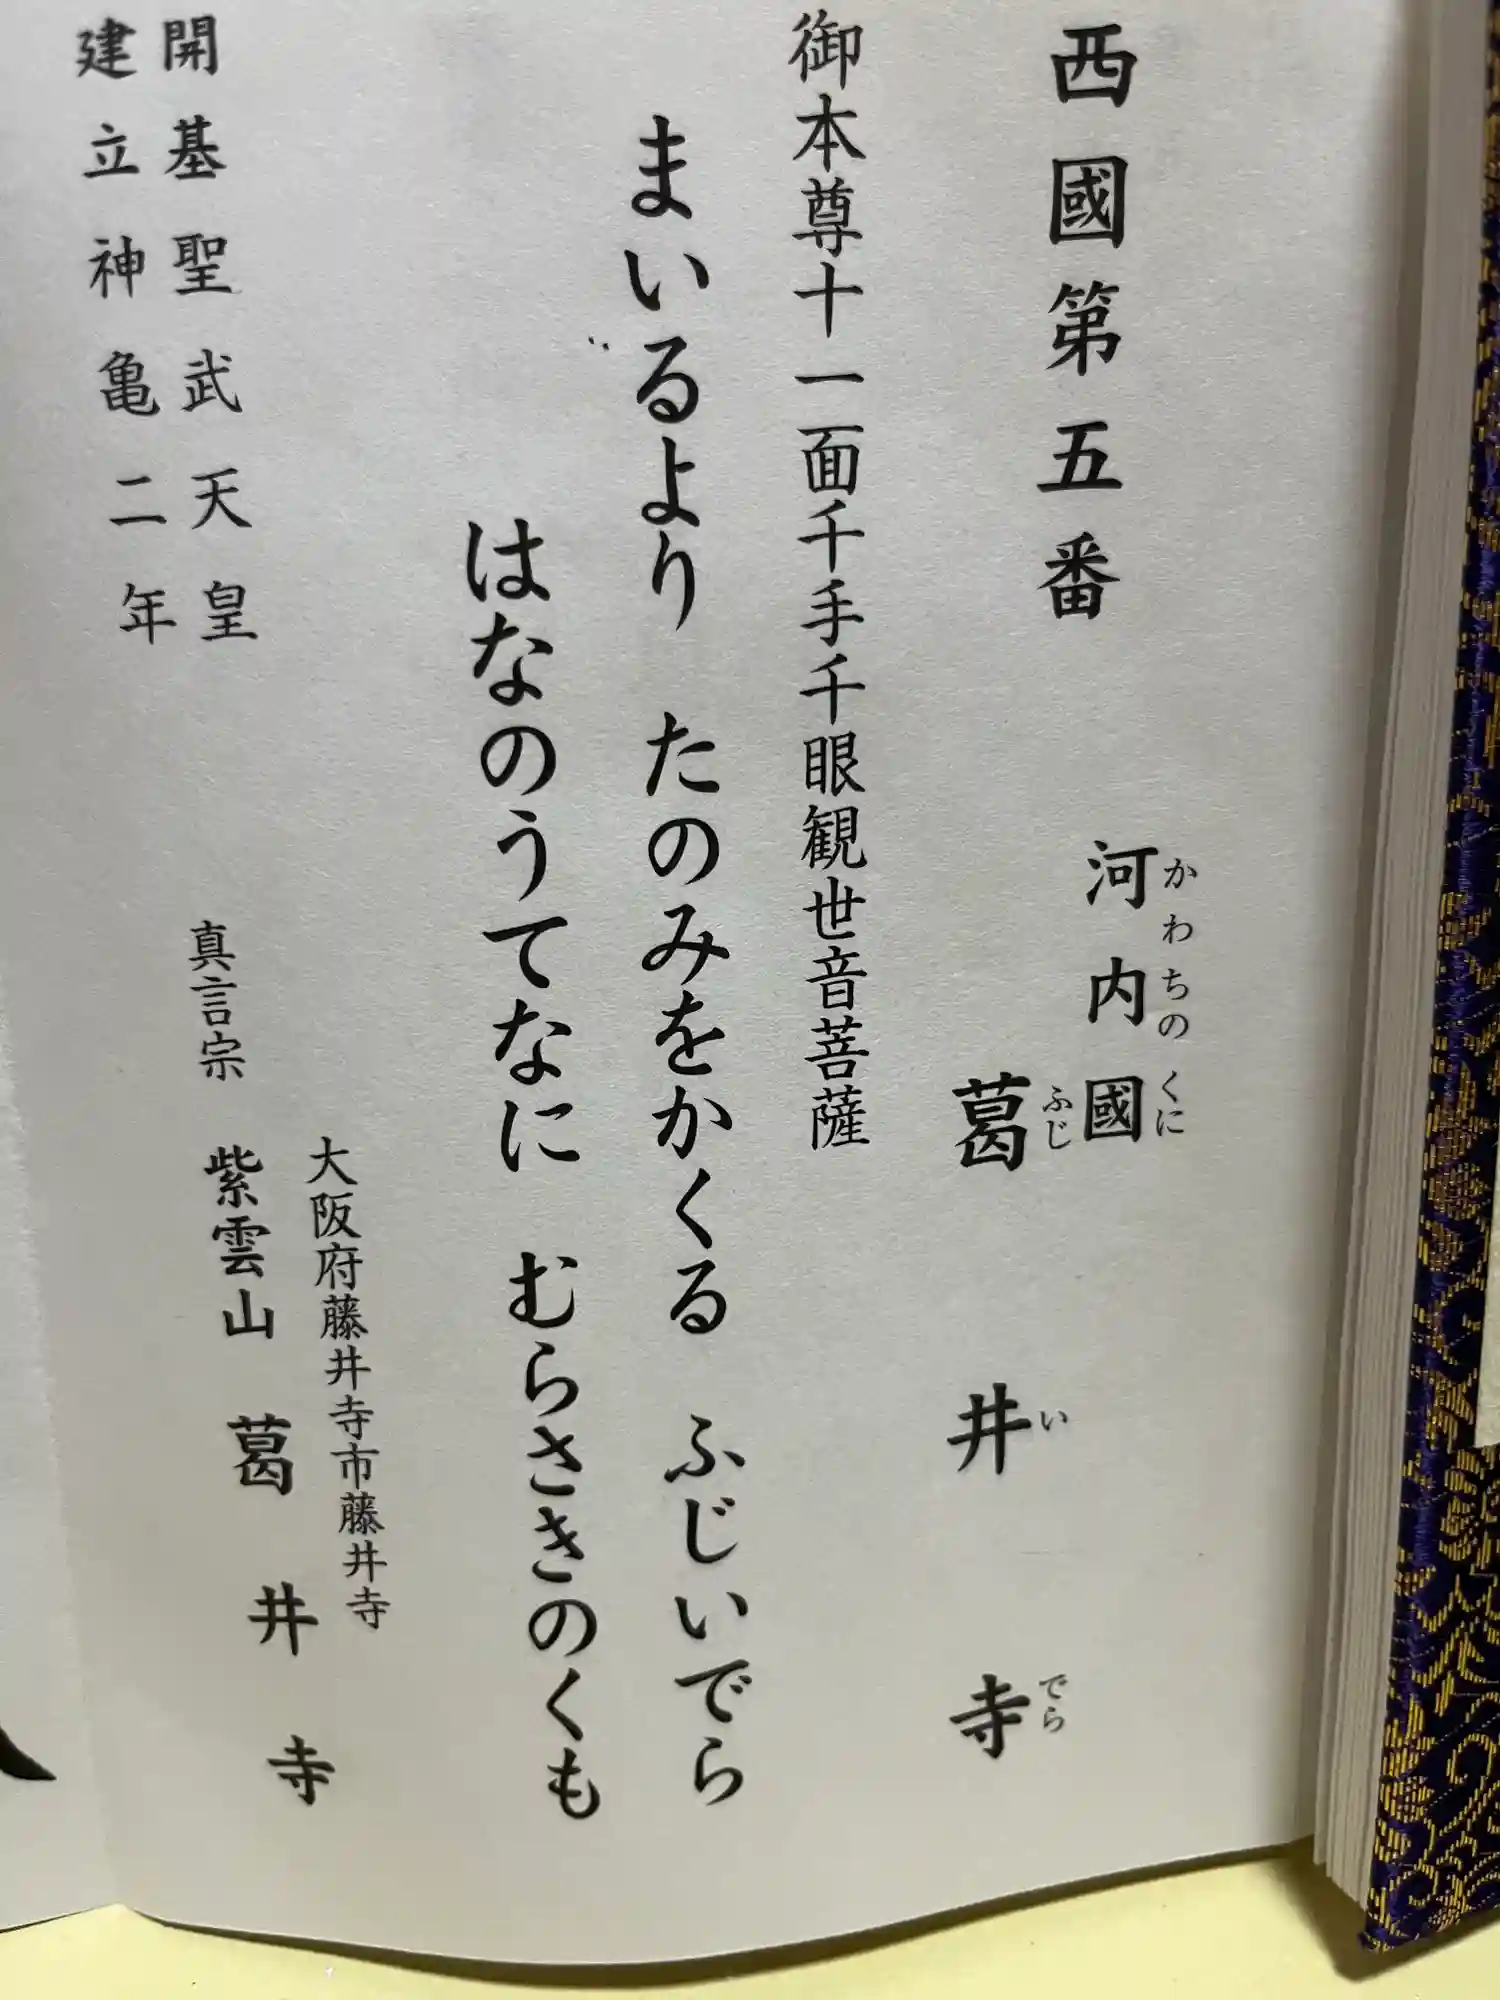 西國第五番
河内國
かわちのくに
葛井寺
ふじいでら
御本尊十一面千手千眼観世音菩薩
まいるより たのみをかくる ふじいでら
はなのうてなに むらさきのくも
大阪府藤井寺市藤井寺
開基聖武天皇
真言宗 紫雲山 葛井寺
建立神亀二年